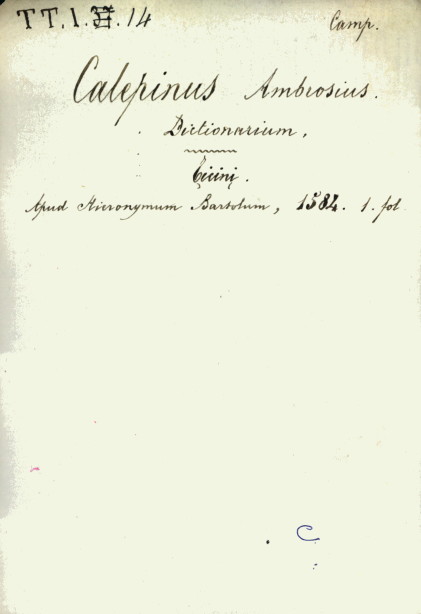 TT.1.H.14 Camp.
Calepinus Ambrosius.
Dictionarium,
Ticini.
Apud Hieronymum Bartolum, 1584. 1. fol
C